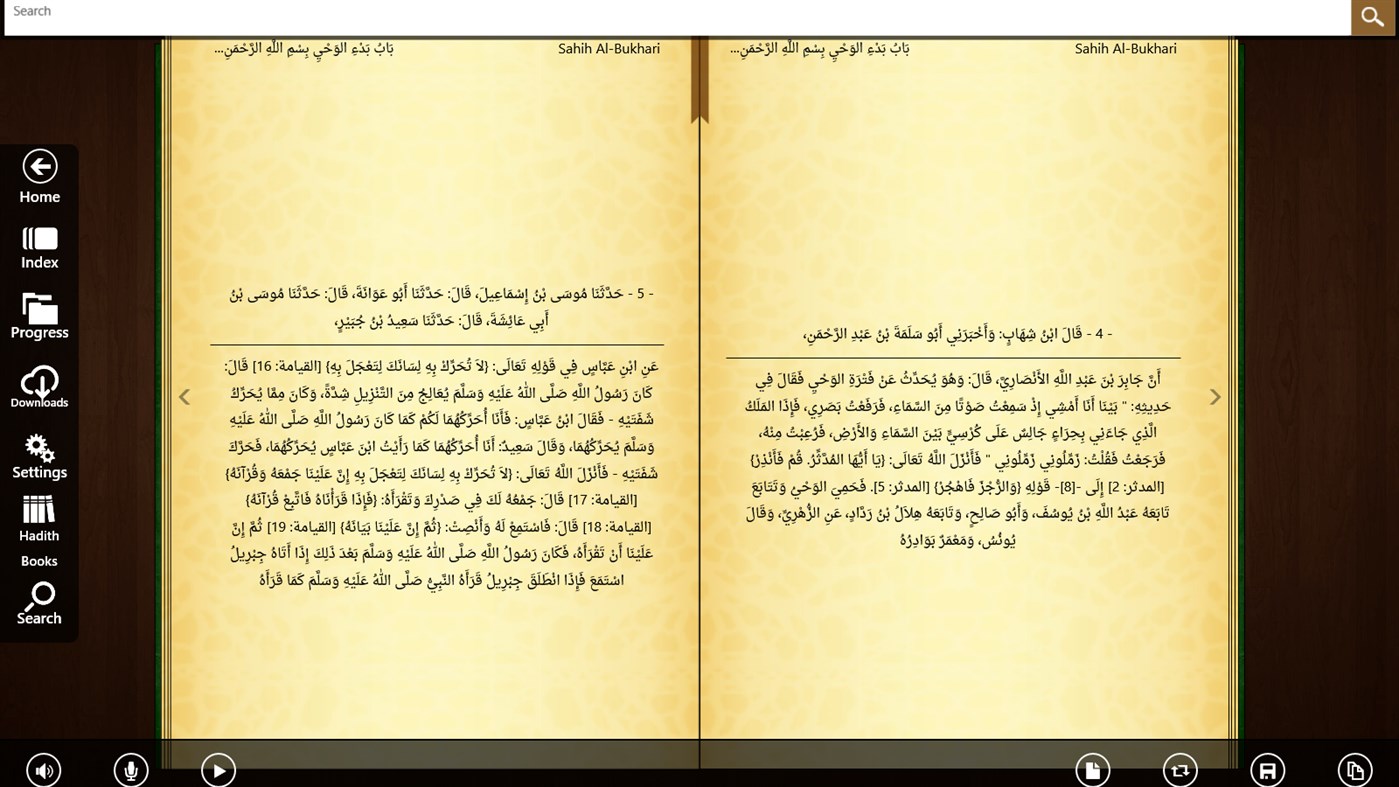 Search
باب بَدْءِ الوَحْيِ بِسْمِ اللَّهِ الرَّحْمَنِ...
Sahih Al-Bukhari
- 4 - قَالَ ابْنُ شِهَابٍ: وَأَخْبَرَنِي أَبُو سَلَمَةَ بْنُ عَبْدِ الرَّحْمَنِ،
أَنَّ جَابِرَ بْنَ عَبْدِ اللَّهِ الأَنْصَارِيَّ، قَالَ: وَهُوَ يُحَدِّثُ عَنْ فَتْرَةِ الوَحْيِ فَقَالَ فِي
حَدِيثِهِ: " بَيْنَا أَنَا أَمْشِي إِذْ سَمِعْتُ صَوْتًا مِنَ السَّمَاءِ، فَرَفَعْتُ بَصَرِي، فَإِذَا المَلَكُ
الَّذِي جَاءَنِي بِحِرَاءٍ جَالِسٌ عَلَى كُرْسِيٍّ بَيْنَ السَّمَاءِ وَالأَرْضِ، فَرُعِبْتُ مِنْهُ،
فَرَجَعْتُ فَقُلْتُ: زَمِّلُونِي زَمِّلُونِي " فَأَنْزَلَ اللَّهُ تَعَالَى: {يَا أَيُّهَا المُدَّثِّرُ. قُمْ فَأَنْذِرْ}
[المدثر: 2] إِلَى -[8]- قَوْلِهِ {وَالرُّجْزَ فَاهْجُرْ} [المدثر: 5]. فَحَمِيَ الوَحْيُ وَتَتَابَعَ
تَابَعَهُ عَبْدُ اللَّهِ بْنُ يُوسُفَ، وَأَبُو صَالِحٍ، وَتَابَعَهُ هِلاَلُ بْنُ رَدَّادٍ، عَنِ الزُّهْرِيِّ، وَقَالَ
يُونُسُ، وَمَعْمَرٌ بَوَادِرُهُ
باب بَدْءِ الوَحْيِ بِسْمِ اللَّهِ الرَّحْمَنِ...
Sahih Al-Bukhari
- 5 - حَدَّثَنَا مُوسَى بْنُ إِسْمَاعِيلَ، قَالَ: حَدَّثَنَا أَبُو عَوَانَةَ، قَالَ: حَدَّثَنَا مُوسَى بْنُ
أَبِي عَائِشَةَ، قَالَ: حَدَّثَنَا سَعِيدُ بْنُ جُبَيْرٍ،
عَنِ ابْنِ عَبَّاسٍ فِي قَوْلِهِ تَعَالَى: {لاَ تُحَرِّكْ بِهِ لِسَانَكَ لِتَعْجَلَ بِهِ} [القيامة: 16] قَالَ:
كَانَ رَسُولُ اللَّهِ صَلَّى اللهُ عَلَيْهِ وَسَلَّمَ يُعَالِجُ مِنَ التَّنْزِيلِ شِدَّةً، وَكَانَ مِمَّا يُحَرِّكُ
شَفَتَيْهِ - فَقَالَ ابْنُ عَبَّاسٍ: فَأَنَا أُحَرِّكُهُمَا لَكُمْ كَمَا كَانَ رَسُولُ اللَّهِ صَلَّى اللهُ عَلَيْهِ
وَسَلَّمَ يُحَرِّكُهُمَا، وَقَالَ سَعِيدٌ: أَنَا أُحَرِّكُهُمَا كَمَا رَأَيْتُ ابْنَ عَبَّاسٍ يُحَرِّكُهُمَا، فَحَرَّكَ
شَفَتَيْهِ - فَأَنْزَلَ اللَّهُ تَعَالَى: {لاَ تُحَرِّكْ بِهِ لِسَانَكَ لِتَعْجَلَ بِهِ إِنَّ عَلَيْنَا جَمْعَهُ وَقُرْآنَهُ}
[القيامة: 17] قَالَ: جَمْعُهُ لَكَ فِي صَدْرِكَ وَتَقْرَأَهُ: {فَإِذَا قَرَأْنَاهُ فَاتَّبِعْ قُرْآنَهُ}
[القيامة: 18] قَالَ: فَاسْتَمِعْ لَهُ وَأَنْصِتْ: {ثُمَّ إِنَّ عَلَيْنَا بَيَانَهُ} [القيامة: 19] ثُمَّ إِنَّ
عَلَيْنَا أَنْ تَقْرَأَهُ، فَكَانَ رَسُولُ اللَّهِ صَلَّى اللهُ عَلَيْهِ وَسَلَّمَ بَعْدَ ذَلِكَ إِذَا أَتَاهُ جِبْرِيلُ
اسْتَمَعَ فَإِذَا انْطَلَقَ جِبْرِيلُ قَرَأَهُ النَّبِيُّ صَلَّى اللهُ عَلَيْهِ وَسَلَّمَ كَمَا قَرَأَهُ
Home
Index
Progress
Downloads
Settings
Hadith
Books
Search